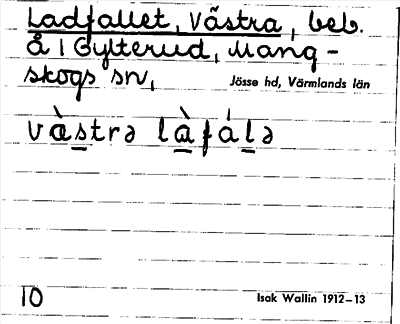 Ladfallet, Västra, beb.
å 1 Gylterud, Mang-
skogs sn,
Jösse hd, Värmlands län
və̀strə làfálə
10
Isak Wallin 1912–13